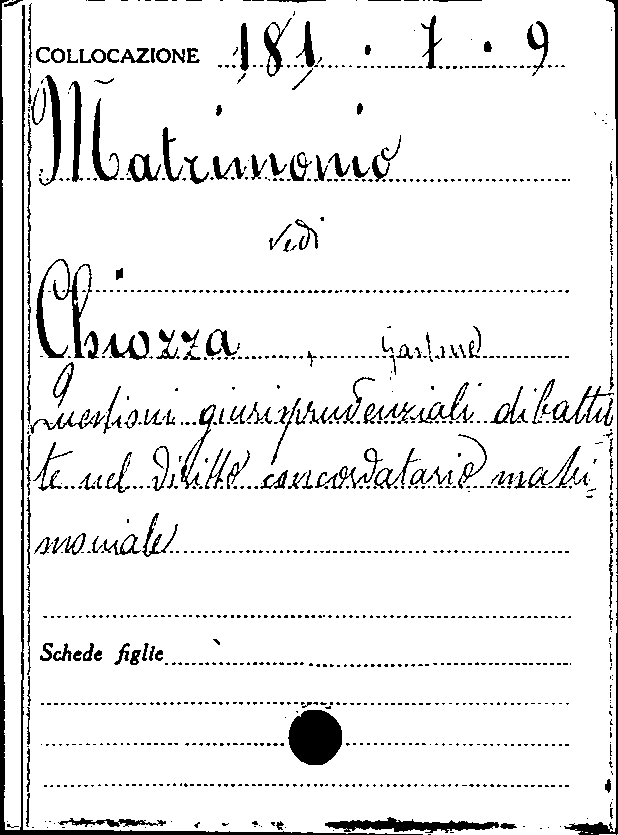 COLLOCAZIONE 181 . 7 . 9
Matrimonio
vedi
Chiozza, Gastone
Questioni giurisprudenziali dibattu
te nel diritto concordatario matri=
moniale
Schede figlie